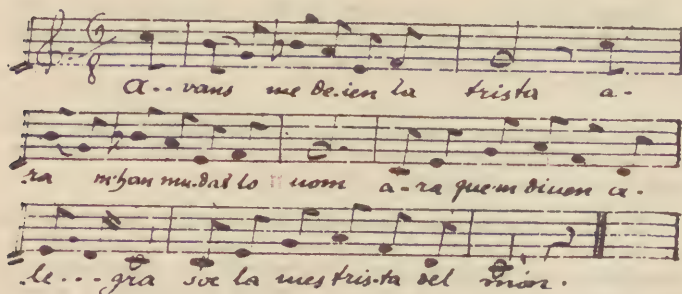 A-- vans me de-ien la trista a-
ra m'han mu-dat lo nom a-ra que-m diuen a-
le---gra soc la mes tris-ta del món.